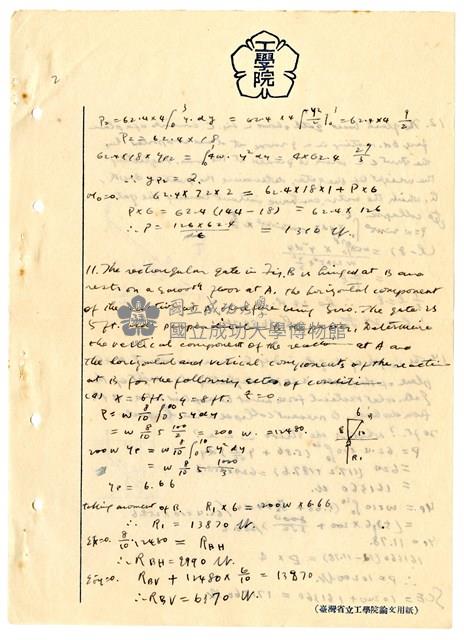 工學院
2
P₂ = 62.4×4∫₀³ y dy = 62.4×4 [y²/2]₀³ = 62.4×4 9/2
P₂ = 62.4×18
62.4×18× yp₂ = ∫₀³ 4w y² dy = 4×62.4 27/3
∴ yp₂ = 2.
62.4×72×2 = 62.4×18×1 + P×6
P×6 = 62.4 (144-18) = 62.4×126
∴ P = 126×62.4/6 = 1310 lb.
11. The rectangular gate in Fig. B is hinged at B and
rests on a smooth floor at A. the horizontal component
of the being zero. The gate is
5 ft. Determine
the vertical component of the reaction at A and
the horizontal and vertical components of the reaction
at B for the following sets of condition
(a) x = 6 ft. y = 8 ft. z = 0
P = w 8/10 ∫₀¹⁰ 5y dy
= w 8/10 5 100/2 = 200 w. = 12480.
200w yp = w 8/10 ∫₀¹⁰ 5y² dy
= w 8/10 5 1000/3
yp = 6.66
6
8 10
R₁
taking moment of B R₁×6 = 200w×6.66
∴ R₁ = 13870 lb.
8/10 12480 = RBH
∴ RBH = 9990 lb.
RBV + 12480×6/10 = 13870
∴ RBV = 6390 lb.
國立成功大學
國立成功大學博物館
(臺灣省立工學院論文用紙)